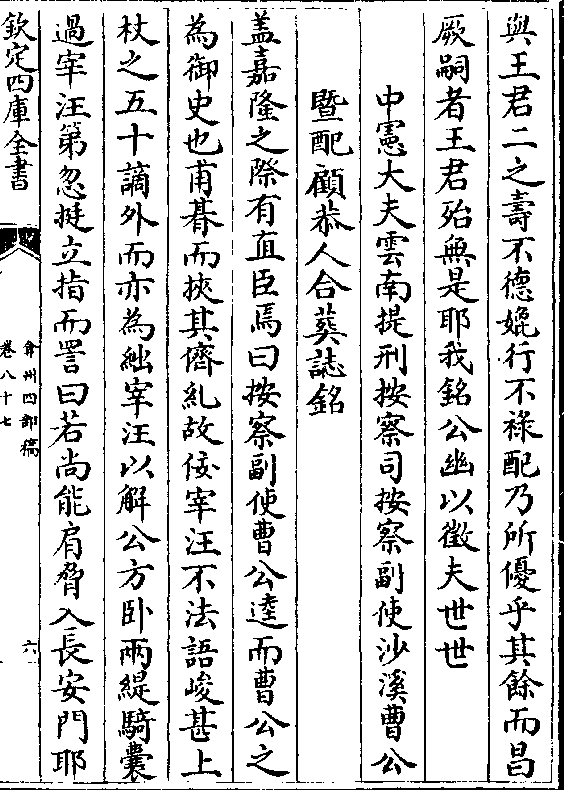 與王君二之壽不德媲行不祿配乃所優乎其餘而昌
厥嗣者王君殆無是耶我銘公幽以徵夫世世
中憲大夫雲南提刑按察司按察副使沙溪曹公
暨配顧恭人合葬誌銘
蓋嘉隆之際有直臣焉曰按察副使曹公逵而曹公之
為御史也甫朞而挾其儕糺故佞宰汪不法語峻甚上
杖之五十謫外而亦為絀宰汪以解公方卧兩緹騎囊
過宰汪第忽挺立指而詈曰若尚能肩脅入長安門耶
欽定四庫全書
弇州四部稿
卷八十七
六